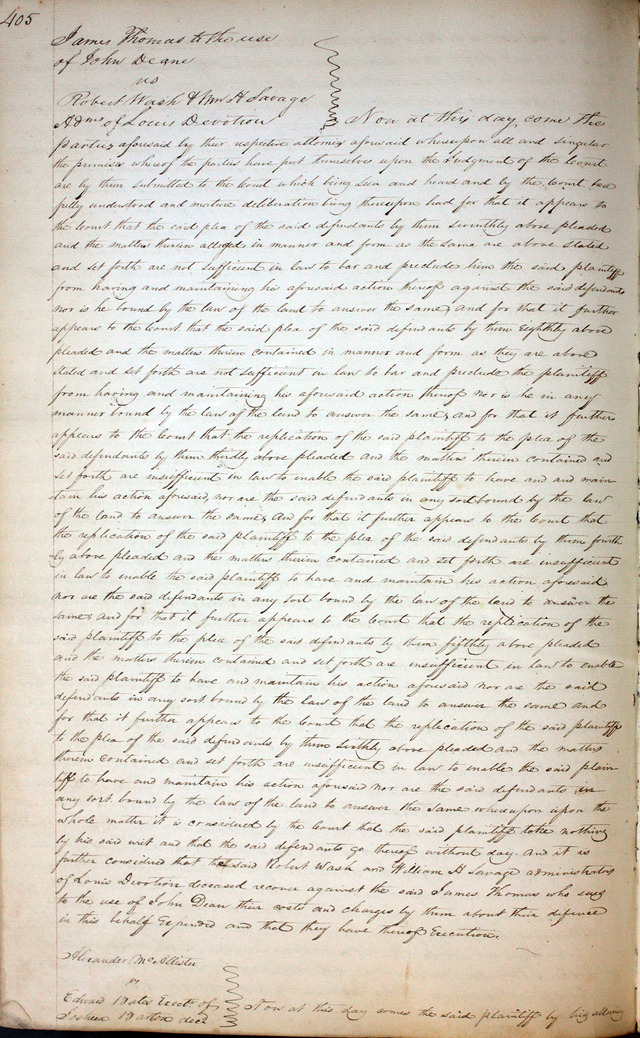 405
James Thomas to the use
of John Deane
vs
Robert Wash & Wm H Savage
Adms of Louis Devotion
Now at this day come the
parties aforesaid by their respective attornies aforesaid whereupon all and singular
the premises whereof the parties have put themselves upon the Judgment of the Court
are by them submitted to the Court which being seen and heard and by the Court here
fully understood and mature deliberation being thereupon had for that it appears to
the Court that the said plea of the said defendants by them Seventhly above pleaded
and the matters therein alleged in manner and form as the same are above stated
and set forth are not sufficient in law to bar and preclude him the said plaintiff
from having and maintaining his aforesaid action thereof against the said defendants
nor is he bound by the law of the land to answer the same, and for that it further
appears to the Court that the said plea of the said defendants by them Eighthly above
pleaded and the matters therein contained in manner and form as they are above
stated and set forth are not sufficient in law to bar and preclude the plaintiff
from having and maintaining his aforesaid action thereof nor is he in any
manner bound by the law of the land to answer the same, and for that it further
appears to the Court that the replication of the said plaintiff to the plea of the
said defendants by them thirdly above pleaded and the matters therein contained and
set forth are insufficient in law to enable the said plaintiff to have and main
tain his action aforesaid, nor are the said defendants in any sort bound by the law
of the land to answer the same, and for that it further appears to the Court that
the replication of the said plaintiff to the plea of the said defendants by them fourth
ly above pleaded and the matters therein contained and set forth are insufficient
in law to enable the said plaintiff to have and maintain his action aforesaid
nor are the said defendants in any sort bound by the law of the land to answer the
same, and for that it further appears to the Court that the replication of the
said plaintiff to the plea of the said defendants by them fifthly above pleaded
and the matters therein contained and set forth are insufficient in law to enable
the said plaintiff to have and maintain his action aforesaid nor are the said
defendants in any sort bound by the law of the land to answer the same and
for that it further appears to the Court that the replication of the said plaintiff
to the plea of the said defendants by them sixthly above pleaded and the matters
therein contained and set forth are insufficient in law to enable the said plain
tiff to have and maintain his action aforesaid nor are the said defendants in
any sort bound by the law of the land to answer the same whereupon upon the
whole matter it is considered by the Court that the said plaintiff take nothing
by his said writ and that the said defendants go thereof without day. And it is
further considered that the said Robert Wash and William H Savage administrators
of Louis Devotion deceased recover against the said James Thomas who sues
to the use of John Dean their costs and charges by them about their defence
in this behalf Expended and that they have thereof Execution.
Alexander McAllister
vs
Edward Bates Exectr of
Joshua Barton decd
Now at this day comes the said plaintiff by his attorney